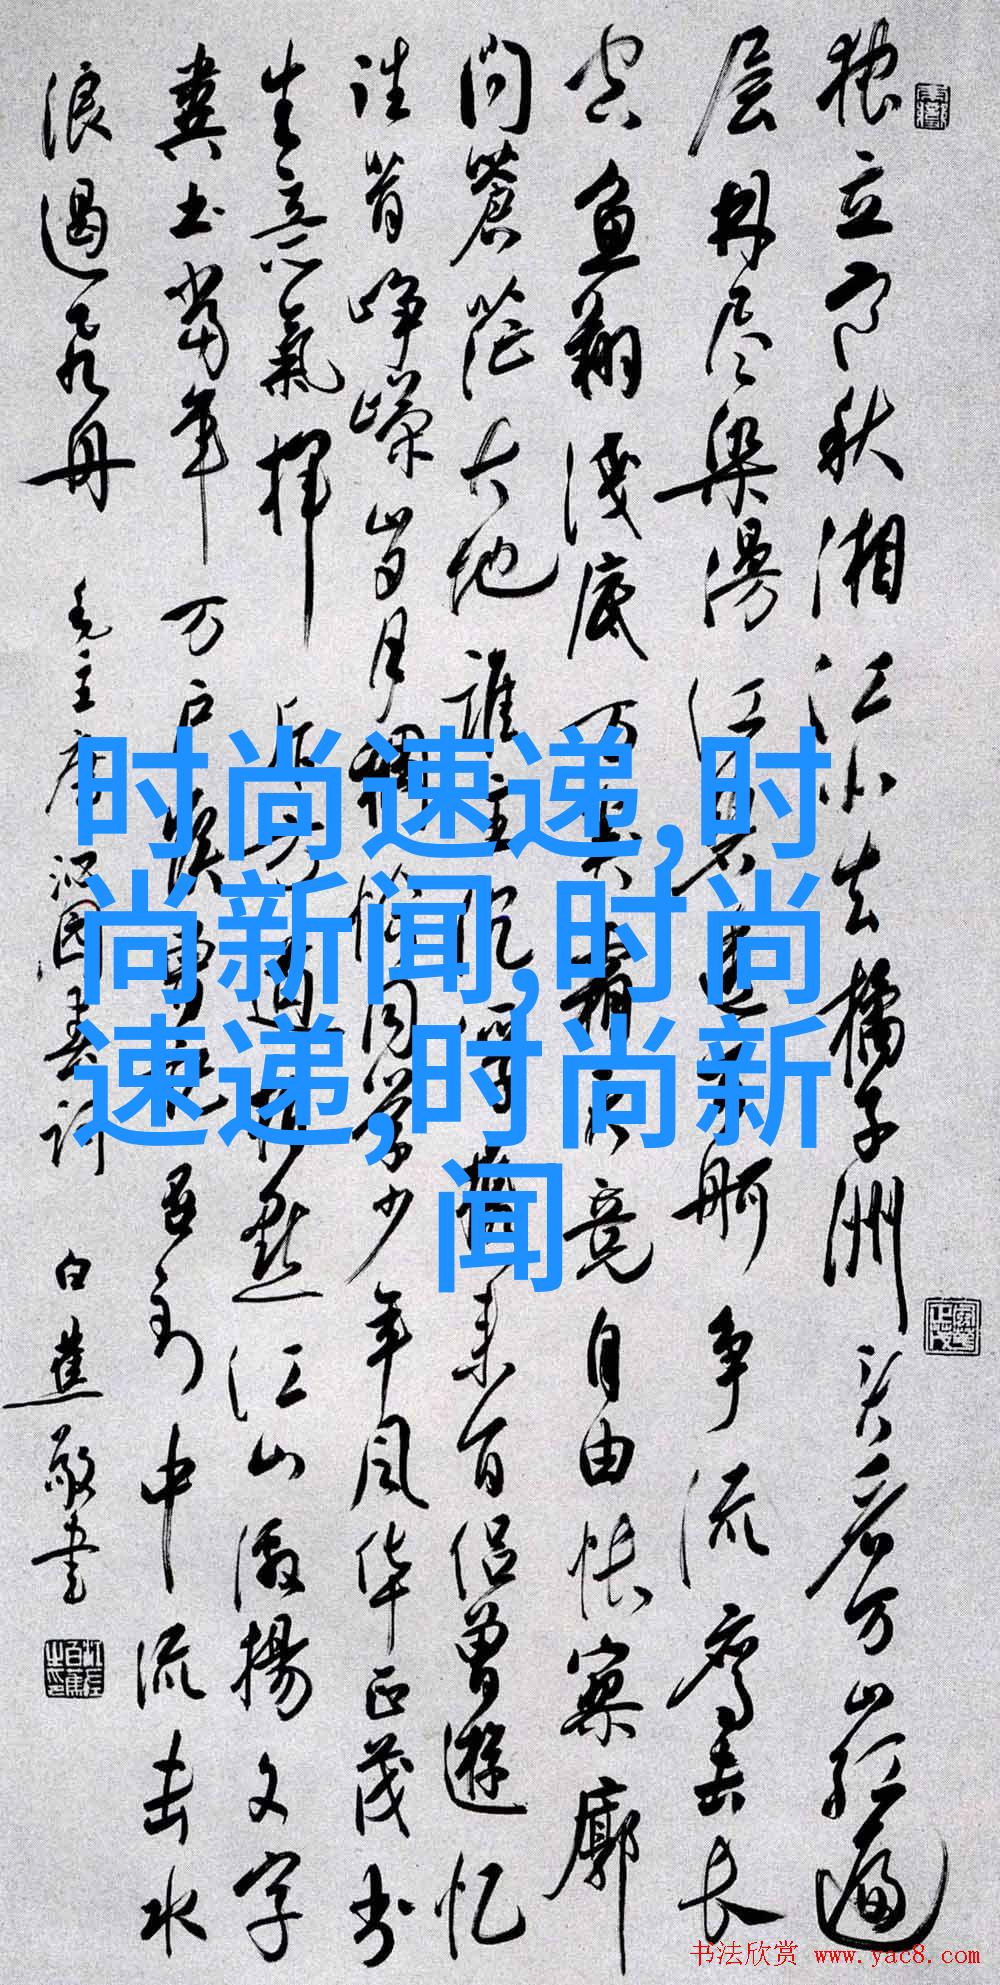 时尚速递,时
尚新闻,时尚
速递,时尚新
闻
独立寒秋湘江北去橘子洲头看万山红遍
层林尽染漫江碧透百舸争流鹰击长
空鱼翔浅底万类霜天竞自由怅寥廓
问蒼茫大地誰主沉浮携来百侣曾遊忆
往昔峥嵘岁月稠恰同学少年风华正茂书
生意氣揮斥方遒指點江山激揚文字
粪土当年万户侯曾记否到中流击水
浪遏飞舟 毛主席沁园春词 白蕉敬書
书法欣赏 www.yac8.com